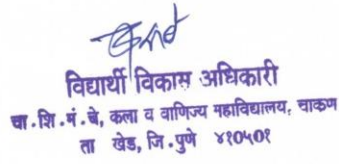 विद्यार्थी विकास अधिकारी
चा.शि.मं.चे, कला व वाणिज्य महाविद्यालय, चाकण
ता खेड, जि.पुणे ४१०५०१